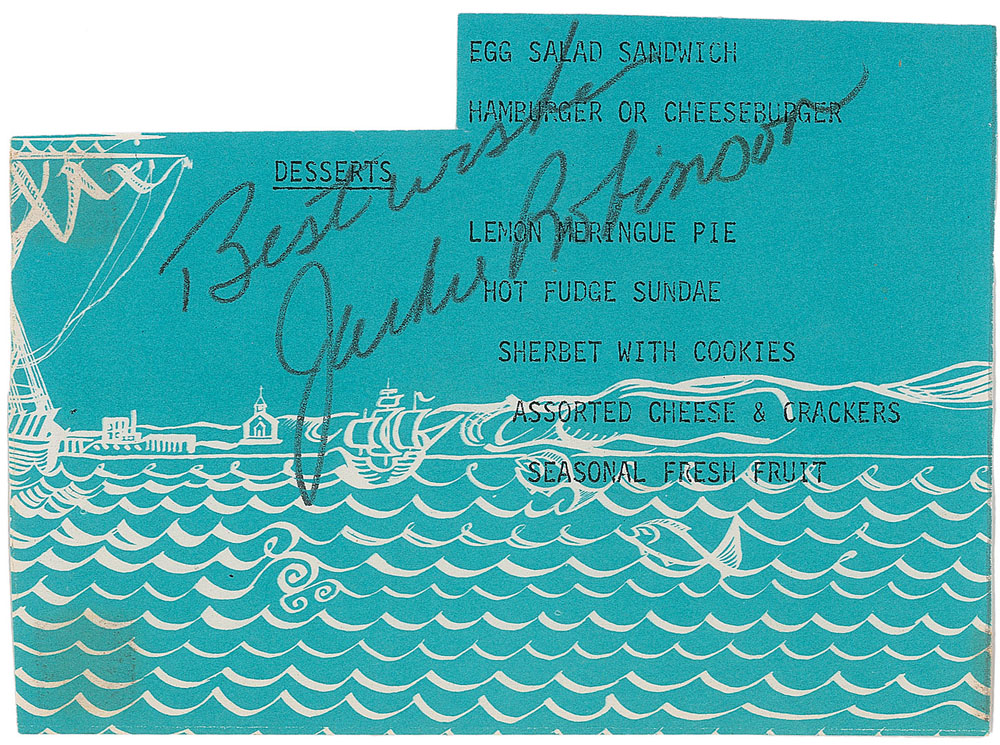 EGG SALAD SANDWICH
HAMBURGER OR CHEESEBURGER
DESSERTS
Best wishe
Jackie Robinson
LEMON MERINGUE PIE
HOT FUDGE SUNDAE
SHERBET WITH COOKIES
ASSORTED CHEESE & CRACKERS
SEASONAL FRESH FRUIT